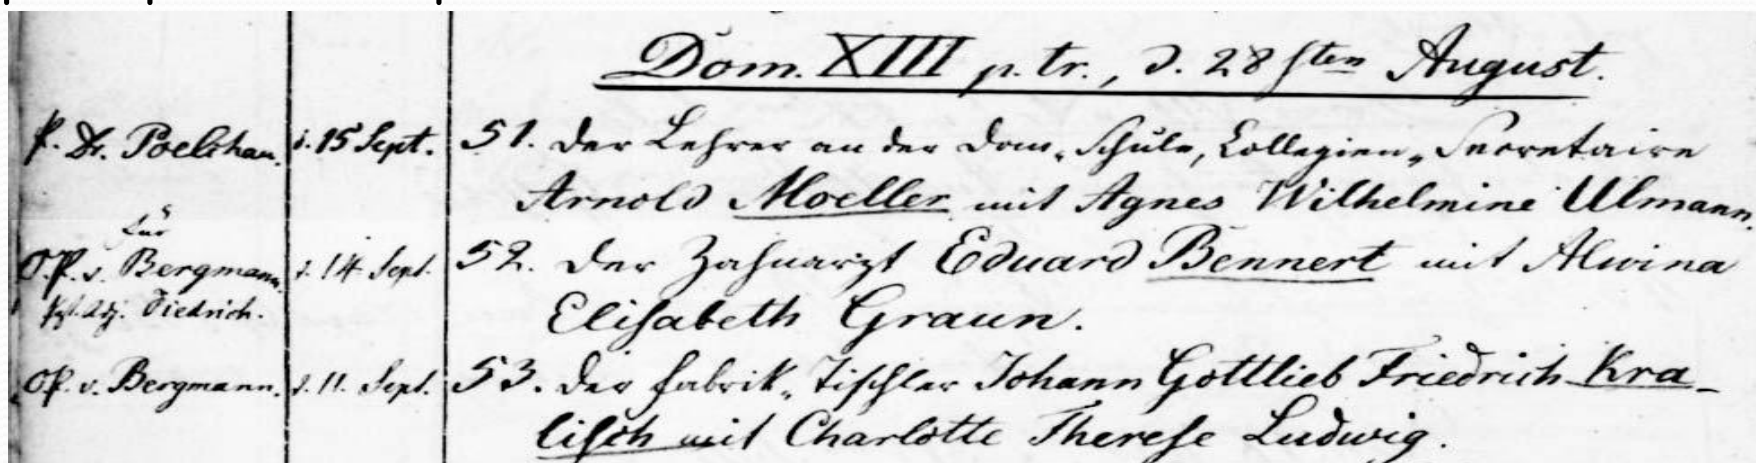 Dom. XIII p. tr., d. 28sten August.
P. Dr. Poelchau. d. 15 Sept. 51. Der Lehrer an der Dom-Schule, Collegien-Secretaire
Arnold Moeller mit Agnes Wilhelmine Ulmann.
für
O.P. v. Bergmann. d. 14. Sept. 52. Der Zahnarzt Eduard Bennert mit Alwina
Past. Adj. Diedrich. Elisabeth Graun.
O.P. v. Bergmann. d. 11. Sept. 53. Der Fabrik-Tischler Johann Gottlieb Friedrich Kra-
lisch mit Charlotte Therese Ludwig.